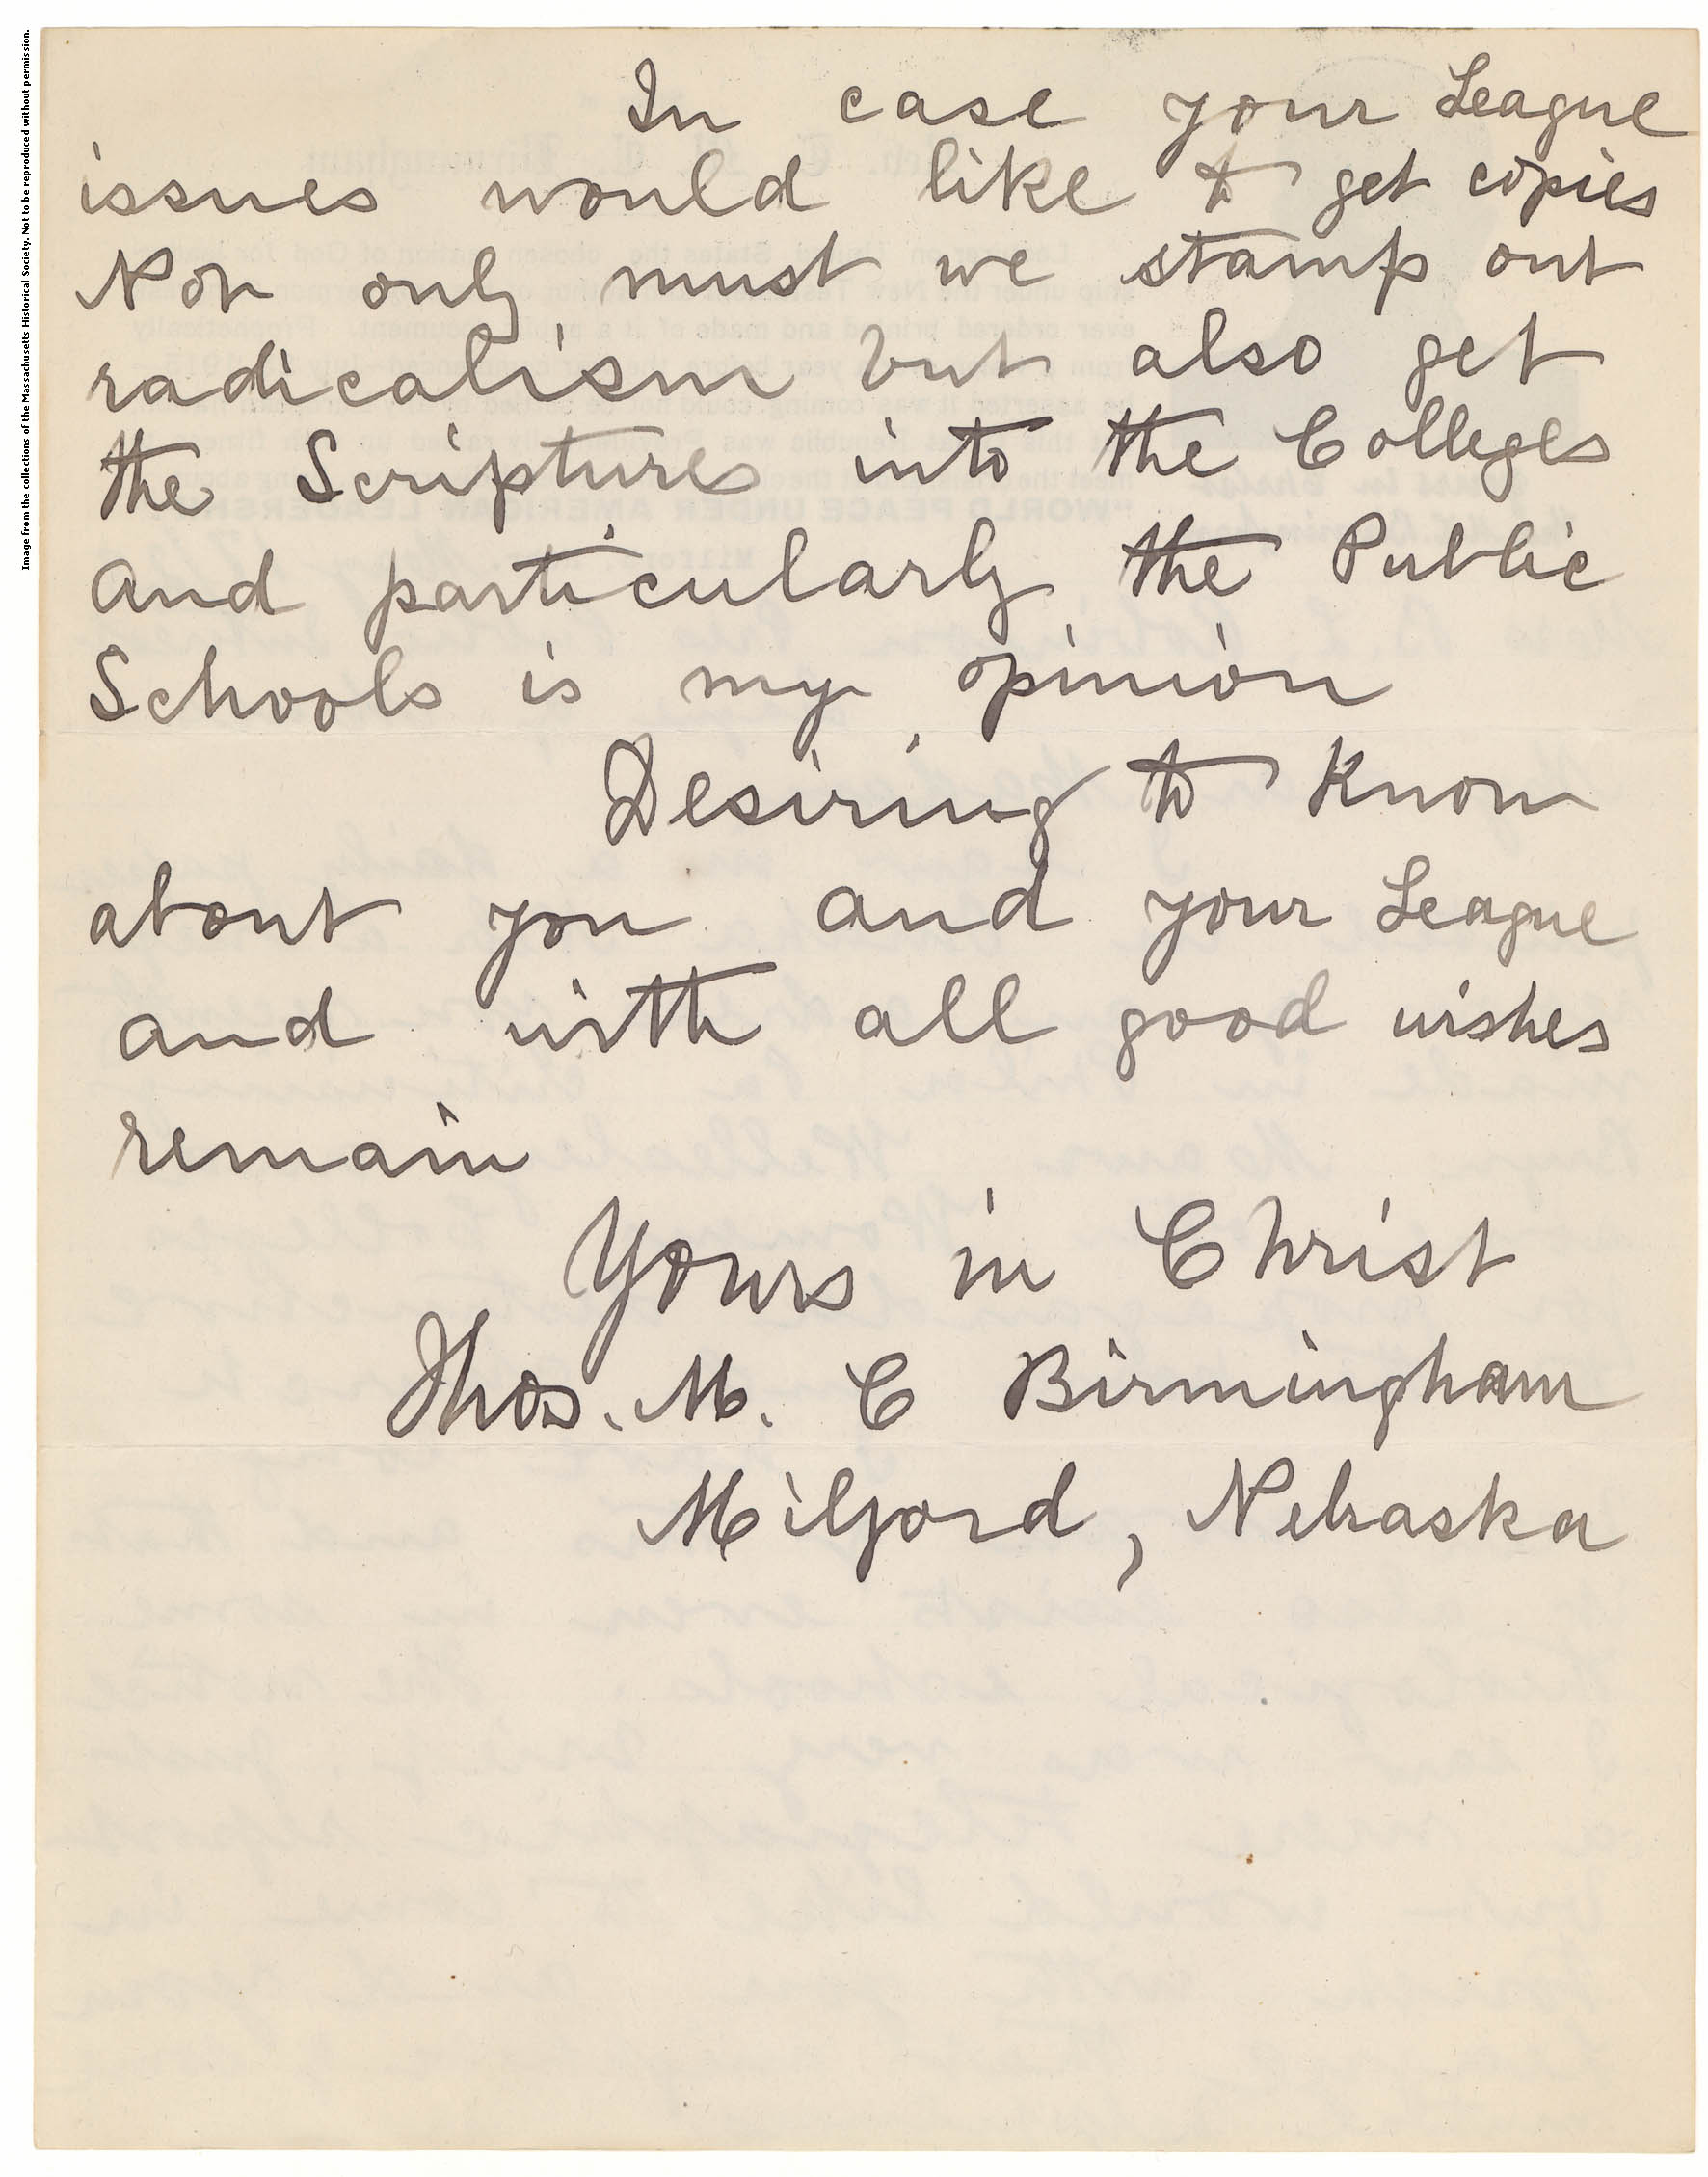 In case your League
issues would like to get copies
Not only must we stamp out
radicalism but also get
the Scriptures into the Colleges
and particularly the Public
Schools is my opinion
Desiring to know
about you and your League
and with all good wishes
remain
Yours in Christ
Thos. M. C Birmingham
Milford, Nebraska
Image from the collections of the Massachusetts Historical Society. Not to be reproduced without permission.